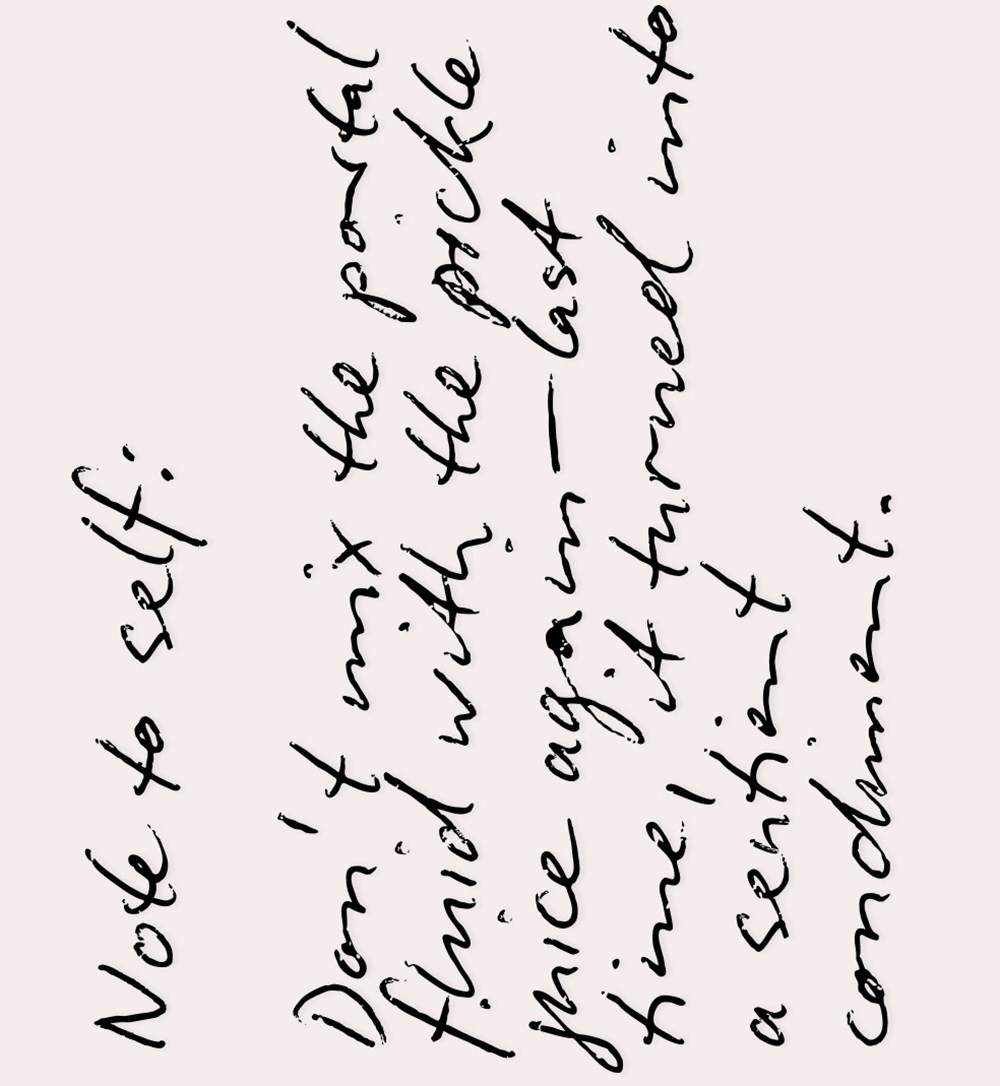 Note to self:
Don't mix the portal
fluid with the pickle
juice again — last
time, it turned into
a sentient
condiment.